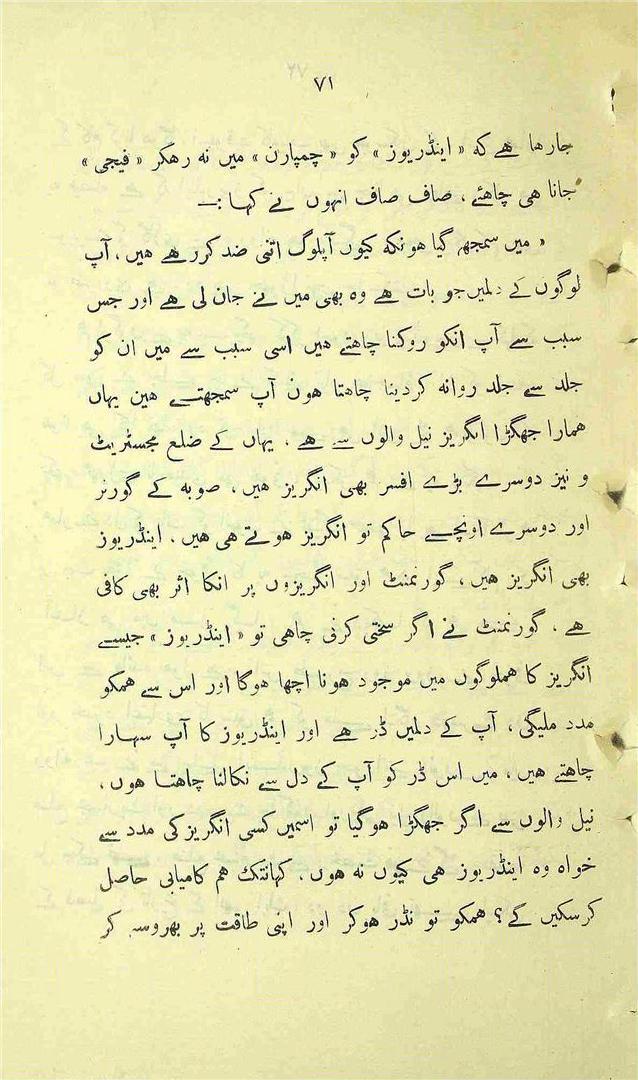 ۷۱
جارها هے که « اینڈریوز » کو « چمپارن » میں نه رهکر « فیجی »
جانا هی چاهئے ، صاف صاف انہوں نے کہا :—
« میں سمجھ گیا هونکه کیوں آپلوگ اتنی ضد کررهے هیں ، آپ
لوگوں کے دلمیں جو بات هے وه بھی میں نے جان لی هے اور جس
سبب سے آپ انکو روکنا چاهتے هیں اسی سبب سے میں ان کو
جلد سے جلد روانه کردینا چاهتا هون آپ سمجھتے هین یہاں
همارا جھگڑا انگریز نیل والوں سے هے . یہاں کے ضلع مجسٹریٹ
و نیز دوسرے بڑے افسر بھی انگریز هیں ، صوبه کے گورنر
اور دوسرے اونچے حاکم تو انگریز هوتے هی هیں . اینڈریوز
بھی انگریز هیں ، گورنمنٹ اور انگریزوں پر انکا اثر بھی کافی
هے . گورنمنٹ نے اگر سختی کرنی چاهی تو « اینڈریوز » جیسے
انگریز کا هملوگوں میں موجود هونا اچھا هوگا اور اس سے همکو
مدد ملیگی ، آپ کے دلمیں ڈر هے اور اینڈریوز کا آپ سہارا
چاهتے هیں ، میں اس ڈر کو آپ کے دل سے نکالنا چاهتا هوں ،
نیل والوں سے اگر جھگڑا هوگیا تو اسمیں کسی انگریز کی مدد سے
خواه وه اینڈریوز هی کیوں نه هوں . کہانتک هم کامیابی حاصل
کرسکیں گے ؟ همکو تو نڈر هوکر اور اپنی طاقت پر بھروسه کر